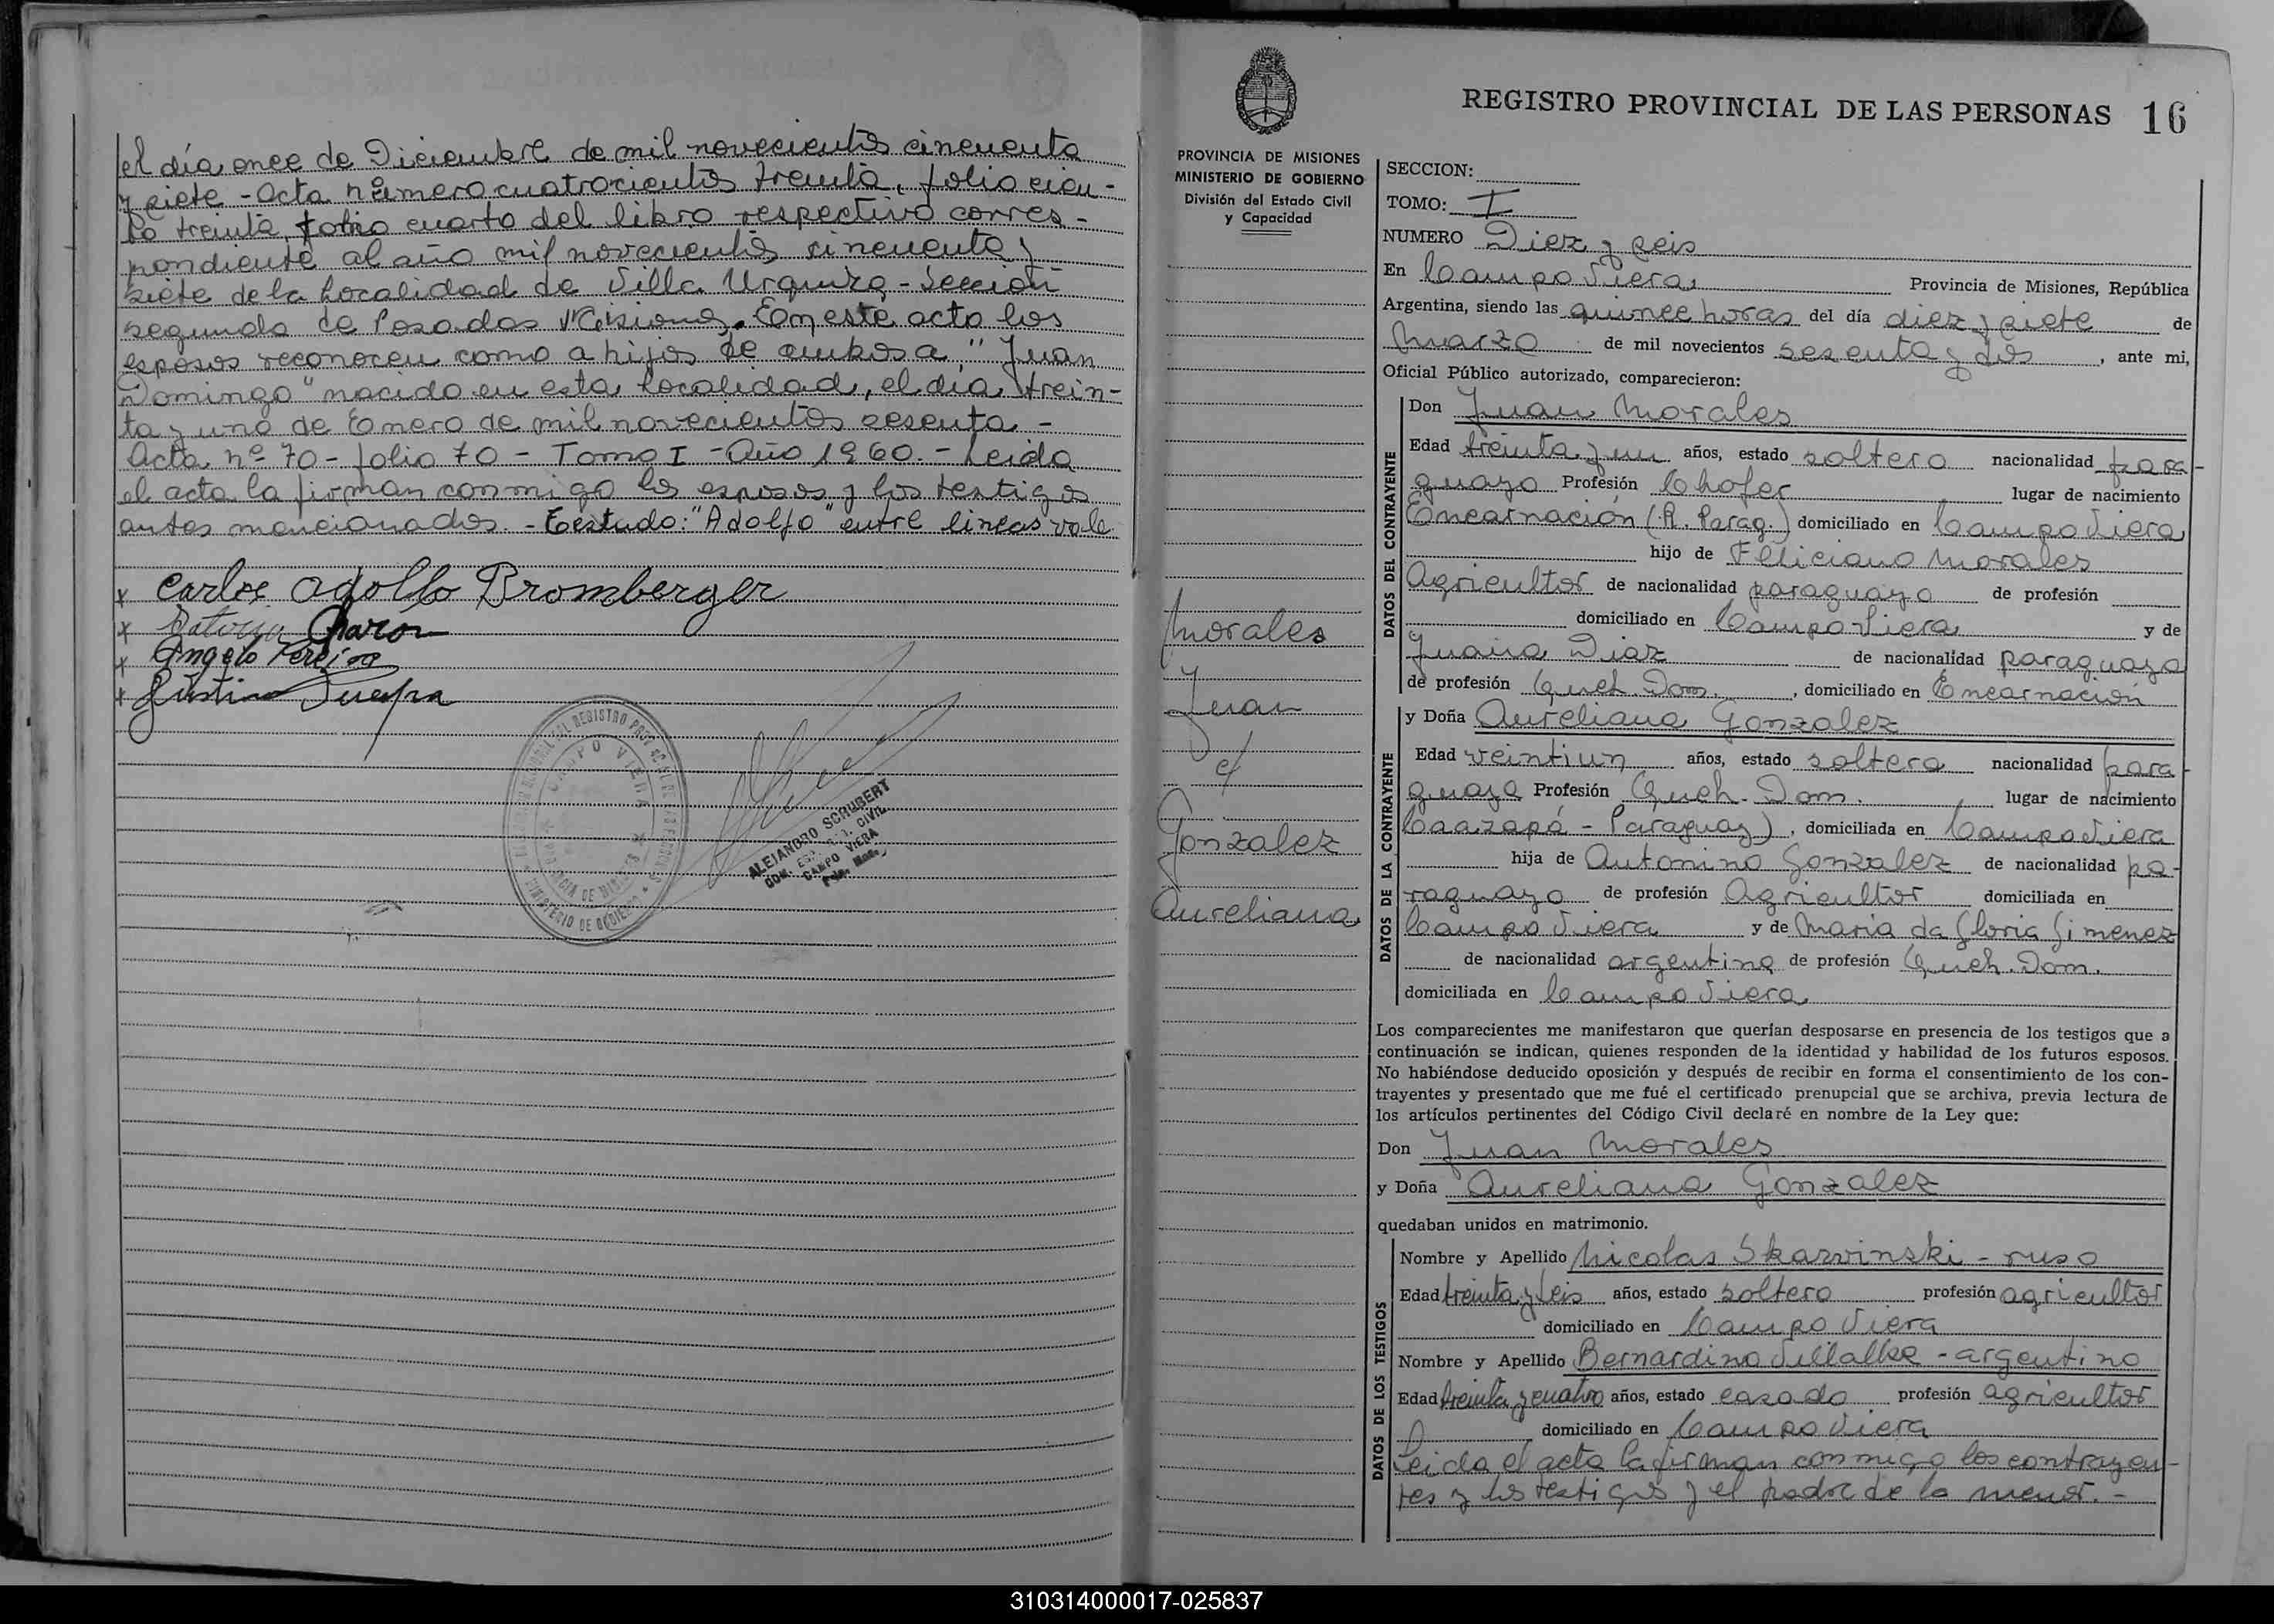 el día once de Diciembre de mil novecientos cincuenta
y siete - Acta número cuatrocientos treinta, folio cien-
to treinta, tomo cuarto del libro respectivo corres-
pondiente al año mil novecientos cincuenta y
siete de la Localidad de Villa Urquiza - Sección
segunda de Posadas Misiones. En este acto los
esposos reconocen como a hijos de ambos a "Juan
Domingo" nacido en esta localidad, el día trein-
ta y uno de Enero de mil novecientos sesenta -
Acta nº 70 - folio 70 - Tomo I - Año 1960. - Leida
el acta la firman conmigo los esposos y los testigos
antes mencionados. - Testado: "Adolfo" entre lineas vale
x Carlos Adolfo Bromberger
x
x Angelo Pereira
x
CAMPO VIERA
ALEJANDRO SCHUBERT
CAMPO VIERA
REGISTRO PROVINCIAL DE LAS PERSONAS 16
PROVINCIA DE MISIONES
MINISTERIO DE GOBIERNO
División del Estado Civil
y Capacidad
Morales
Juan
c/
Gonzalez
Aureliana
SECCION:
TOMO: I
NUMERO Diez y seis
En Campo Viera Provincia de Misiones, República
Argentina, siendo las quince horas del día diez y siete de
Marzo de mil novecientos sesenta y dos, ante mi,
Oficial Público autorizado, comparecieron:
DATOS DEL CONTRAYENTE
Don Juan Morales
Edad treinta y un años, estado soltero nacionalidad para-
guayo Profesión Chofer lugar de nacimiento
Encarnación (R. Parag.) domiciliado en Campo Viera
hijo de Feliciano Morales
Agricultor de nacionalidad paraguayo de profesión
domiciliado en Campo Viera y de
Juana Diaz de nacionalidad paraguaya
de profesión Queh. Dom., domiciliado en Encarnación
DATOS DE LA CONTRAYENTE
y Doña Aureliana Gonzalez
Edad veintiun años, estado soltera nacionalidad para-
guaya Profesión Queh. Dom. lugar de nacimiento
Caazapá - Paraguay), domiciliada en Campo Viera
hija de Antonino Gonzalez de nacionalidad pa-
raguayo de profesión Agricultor domiciliada en
Campo Viera y de Maria da Gloria Gimenez
de nacionalidad argentina de profesión Queh. Dom.
domiciliada en Campo Viera
Los comparecientes me manifestaron que querían desposarse en presencia de los testigos que a
continuación se indican, quienes responden de la identidad y habilidad de los futuros esposos.
No habiéndose deducido oposición y después de recibir en forma el consentimiento de los con-
trayentes y presentado que me fué el certificado prenupcial que se archiva, previa lectura de
los artículos pertinentes del Código Civil declaré en nombre de la Ley que:
Don Juan Morales
y Doña Aureliana Gonzalez
quedaban unidos en matrimonio.
DATOS DE LOS TESTIGOS
Nombre y Apellido Nicolas Skarvinski - ruso
Edad treinta y seis años, estado soltero profesión agricultor
domiciliado en Campo Viera
Nombre y Apellido Bernardino Villalba - argentino
Edad treinta y cuatro años, estado casado profesión agricultor
domiciliado en Campo Viera
Leida el acta la firman conmigo los contrayen-
tes y los testigos y el padre de la menor. -
310314000017-025837